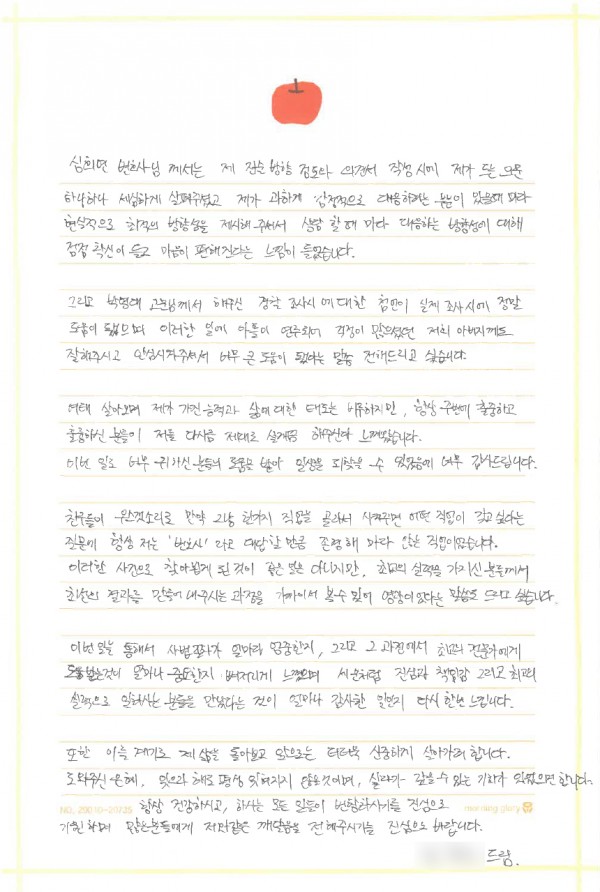 심희연 변호사님 께서는 제 진술 방향 검토와 의견서 작성 시에 제가 드는 의문
하나하나 세심하게 살펴주셨고 제가 과하게 감정적으로 대응하려는 부분이 있을때 마다
현실적으로 최적의 방향성을 제시해 주셔서 상담 할 때 마다 대응하는 방향성에 대해
점점 확신이 들고 마음이 편해진다는 느낌이 들었습니다.
그리고 박영대 고문님께서 해주신 경찰 조사시에 대한 첨언이 실제 조사시에 정말
도움이 됐으며 이러한 일에 아들이 연루되어 걱정이 많으셨던 저희 아버지께도
잘해주시고 안심시켜주셔서 너무 큰 도움이 됐다는 말씀 전해드리고 싶습니다.
여태 살아오며 제가 가진 능력과 삶에 대한 태도는 비루하지만, 항상 주변에 출중하고
훌륭하신 분들이 저를 다시금 제대로 살게끔 해주신다 느껴왔습니다.
이번 일도 너무 귀하신 분들의 도움을 받아 일상을 되찾을 수 있었음에 너무 감사드립니다.
친구들이 우스갯소리로 만약 그냥 한가지 직업을 골라서 시켜주면 어떤 직업이 갖고 싶냐는
질문에 항상 저는 '변호사' 라고 대답할 만큼 존경해 마다 않는 직업이었습니다.
이러한 사건으로 찾아뵙게 된 것이 좋은 일은 아니지만, 최고의 실력을 가지신 분들께서
최선의 결과를 만들어 내주시는 과정을 가까이서 볼 수 있어 영광이었다는 말씀을 드리고 싶습니다.
이번 일을 통해서 사법절차가 얼마나 엄중한지, 그리고 그 과정에서 최고의 전문가에게
도움받는것이 얼마나 중요한지 뼈저리게 느꼈으며 세운처럼 진심과 책임감 그리고 최고의
실력으로 일하시는 분들을 만났다는 것이 얼마나 감사한 일인지 다시 한번 느낍니다.
또한 이를 계기로 제 삶을 돌아보고 앞으로는 더더욱 신중하게 살아가려 합니다.
도와주신 은혜, 잊으라 해도 평생 잊혀지지 않을것이며, 실낱같이 갚을 수 있는 기회가 있었으면 합니다.
항상 건강하시고, 하시는 모든 일들이 번창하시기를 진심으로
기원하며 많은분들에게 저와같은 깨달음을 전해주시기를 진심으로 바랍니다.
드림.
NO. 29010-20725
morning glory